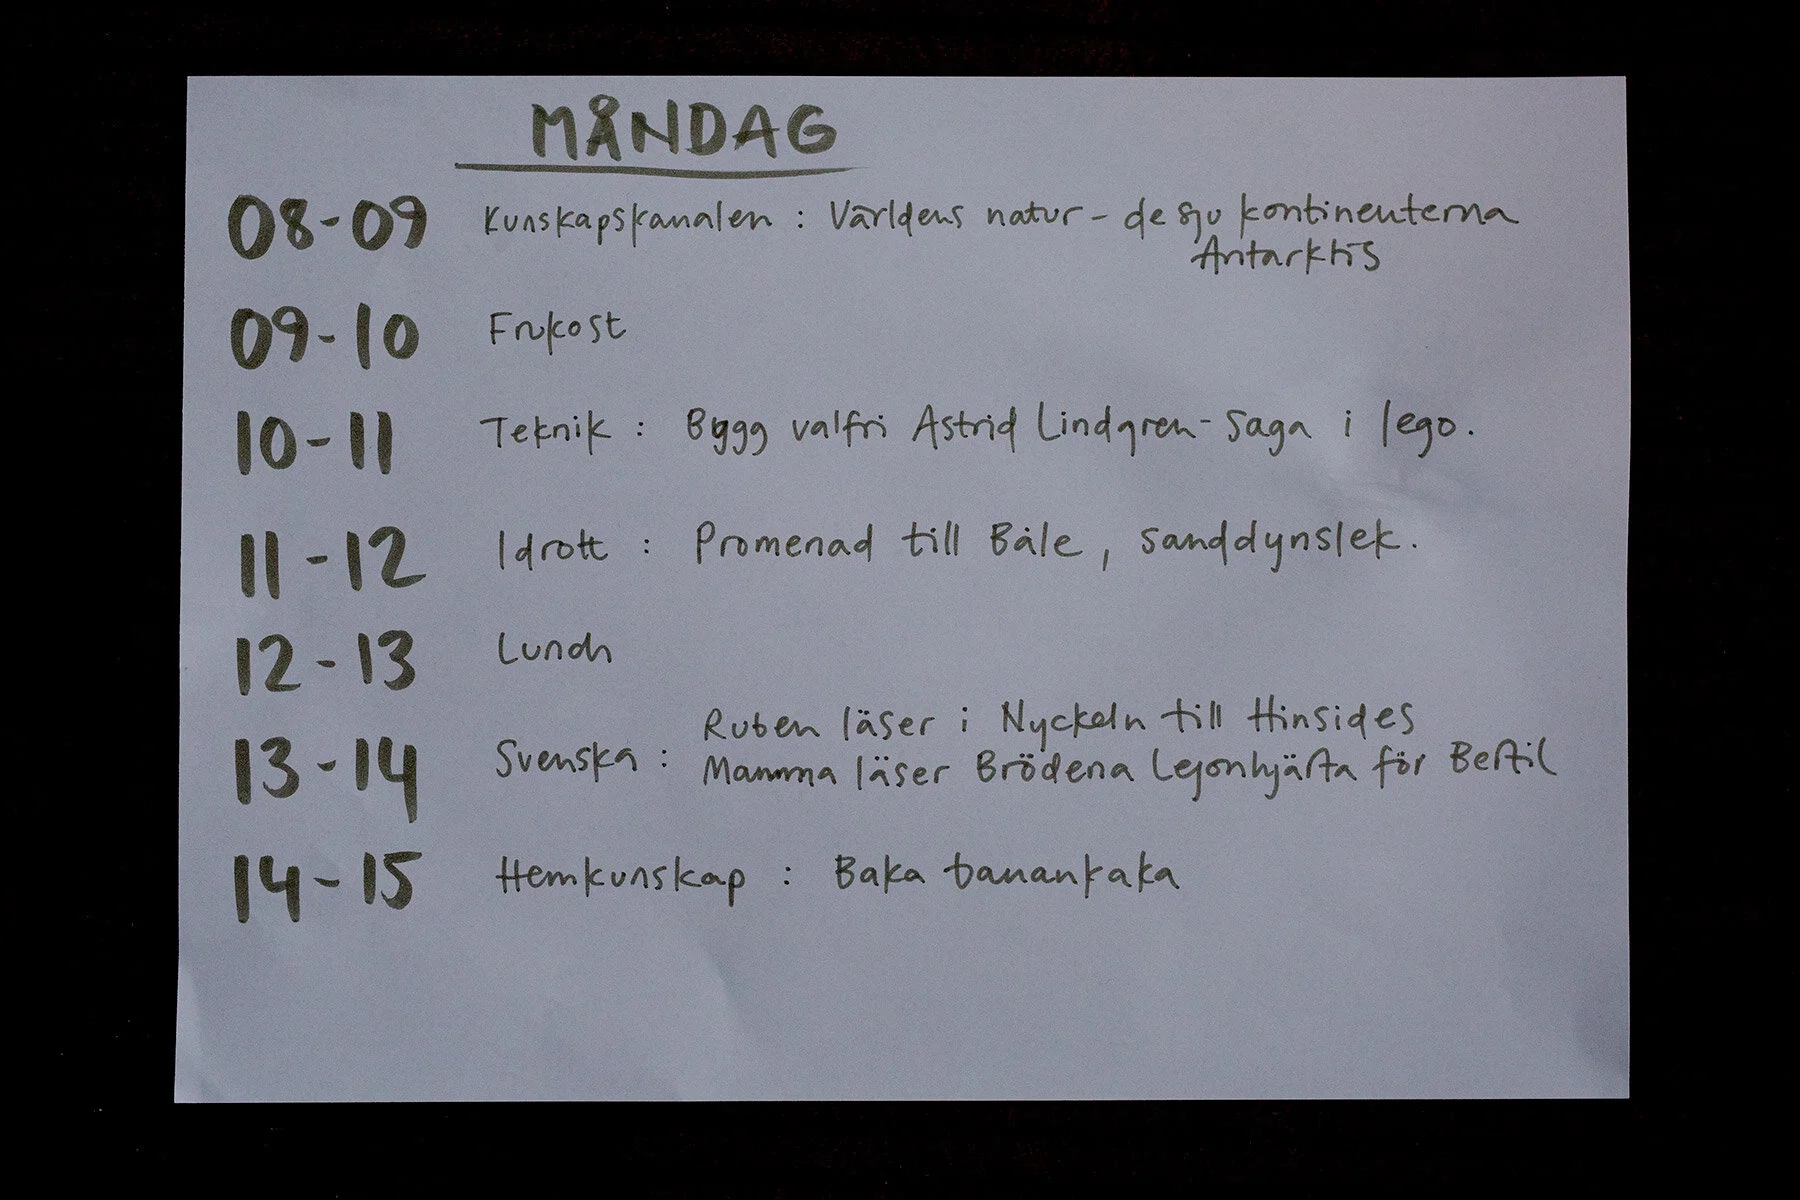 MÅNDAG
08-09 Kunskapskanalen : Världens natur - de sju kontinenterna
Antarktis
09-10 Frukost
10-11 Teknik : Bygg valfri Astrid Lindgren-saga i lego.
11-12 Idrott : Promenad till Båle, sanddynslek.
12-13 Lunch
Ruben läser i Nyckeln till Hinsides
13-14 Svenska :
Mamma läser Bröderna Lejonhjärta för Bertil
14-15 Hemkunskap : Baka banankaka